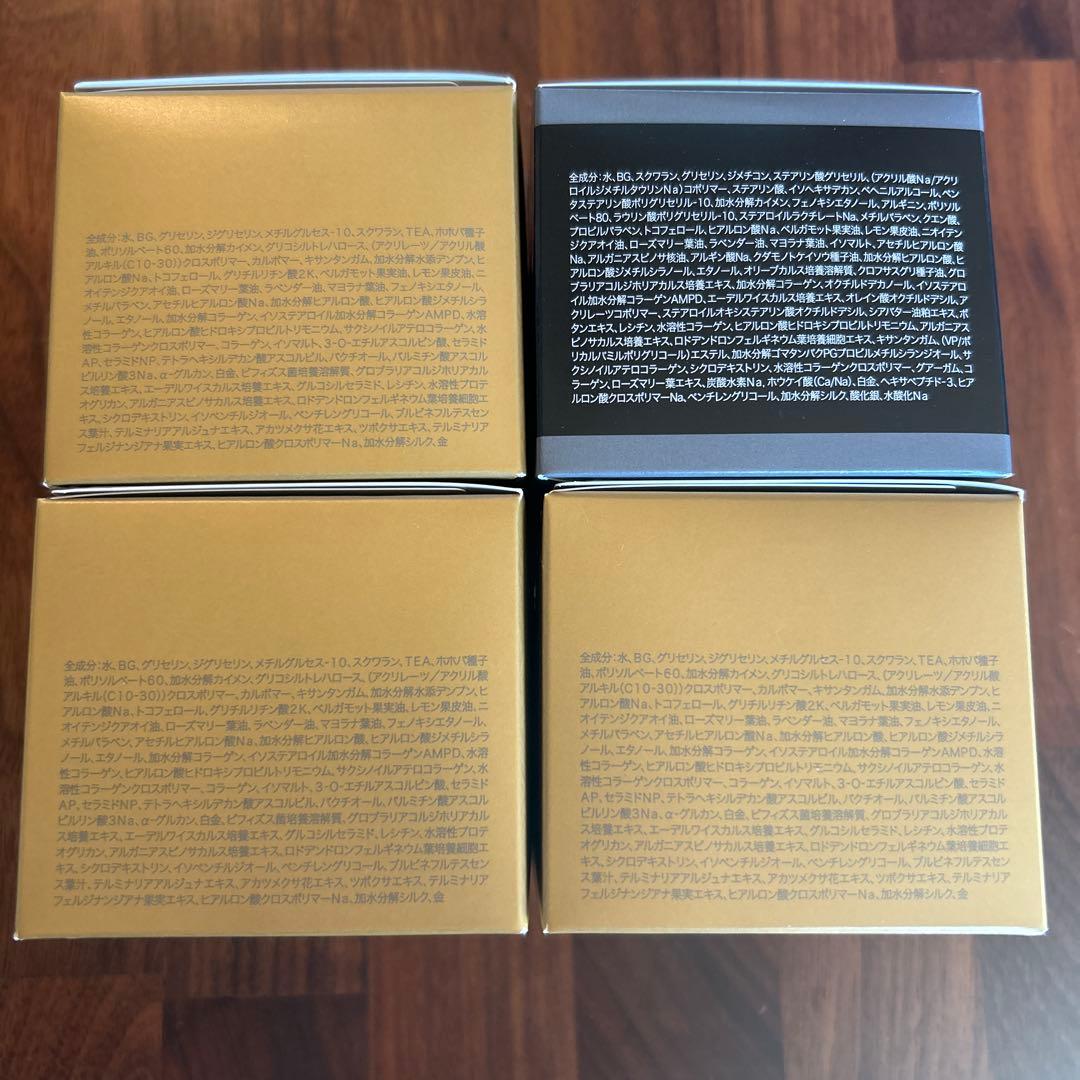 全成分：水、BG、グリセリン、ジグリセリン、メチルグルセス-10、スクワラン、TEA、ホホバ種子
油、ポリソルベート60、加水分解カイメン、グリコシルトレハロース、(アクリレーツ／アクリル酸
アルキル(C10-30))クロスポリマー、カルボマー、キサンタンガム、加水分解水添デンプン、ヒ
アルロン酸Na、トコフェロール、グリチルリチン酸2K、ベルガモット果実油、レモン果皮油、ニ
オイテンジクアオイ油、ローズマリー葉油、ラベンダー油、マヨラナ葉油、フェノキシエタノール、
メチルパラベン、アセチルヒアルロン酸Na、加水分解ヒアルロン酸、ヒアルロン酸ジメチルシラ
ノール、エタノール、加水分解コラーゲン、イソステアロイル加水分解コラーゲンAMPD、水溶
性コラーゲン、ヒアルロン酸ヒドロキシプロピルトリモニウム、サクシノイルアテロコラーゲン、水
溶性コラーゲンクロスポリマー、コラーゲン、イソマルト、3-O-エチルアスコルビン酸、セラミド
AP、セラミドNP、テトラヘキシルデカン酸アスコルビル、バクチオール、パルミチン酸アスコ
ルビルリン酸3Na、α-グルカン、白金、ビフィズス菌培養溶解質、グロブラリアコルジホリアカル
ス培養エキス、エーデルワイスカルス培養エキス、グルコシルセラミド、レシチン、水溶性プロテ
オグリカン、アルガニアスピノサカルス培養エキス、ロドデンドロンフェルギネウム葉培養細胞エ
キス、シクロデキストリン、イソペンチルジオール、ペンチレングリコール、ブルビネフルテスセン
ス葉汁、テルミナリアアルジュナエキス、アカツメクサ花エキス、ツボクサエキス、テルミナリア
フェルジナンジアナ果実エキス、ヒアルロン酸クロスポリマーNa、加水分解シルク、金
全成分：水、BG、スクワラン、グリセリン、ジメチコン、ステアリン酸グリセリル、(アクリル酸Na/アクリ
ロイルジメチルタウリンNa)コポリマー、ステアリン酸、イソヘキサデカン、ベヘニルアルコール、ペン
タステアリン酸ポリグリセリル-10、加水分解カイメン、フェノキシエタノール、アルギニン、ポリソル
ベート80、ラウリン酸ポリグリセリル-10、ステアロイルラクチレートNa、メチルパラベン、クエン酸、
プロピルパラベン、トコフェロール、ヒアルロン酸Na、ベルガモット果実油、レモン果皮油、ニオイテン
ジクアオイ油、ローズマリー葉油、ラベンダー油、マヨラナ葉油、イソマルト、アセチルヒアルロン酸
Na、アルガニアスピノサ核油、アルギン酸Na、クダモノトケイソウ種子油、加水分解ヒアルロン酸、ヒ
アルロン酸ジメチルシラノール、エタノール、オリーブカルス培養溶解質、クロフサスグリ種子油、グロ
ブラリアコルジホリアカルス培養エキス、加水分解コラーゲン、オクチルドデカノール、イソステアロ
イル加水分解コラーゲンAMPD、エーデルワイスカルス培養エキス、オレイン酸オクチルドデシル、ア
クリレーツコポリマー、ステアロイルオキシステアリン酸オクチルドデシル、シアバター油粕エキス、ボ
タンエキス、レシチン、水溶性コラーゲン、ヒアルロン酸ヒドロキシプロピルトリモニウム、アルガニアス
ピノサカルス培養エキス、ロドデンドロンフェルギネウム葉培養細胞エキス、キサンタンガム、(VP/ポ
リカルバミルポリグリコール)エステル、加水分解ゴマタンパクPGプロピルメチルシランジオール、サ
クシノイルアテロコラーゲン、シクロデキストリン、水溶性コラーゲンクロスポリマー、グアーガム、コ
ラーゲン、ローズマリー葉エキス、炭酸水素Na、ホウケイ酸(Ca/Na)、白金、ヘキサペプチド-3、ヒア
ルロン酸クロスポリマーNa、ペンチレングリコール、加水分解シルク、酸化銀、水酸化Na
全成分：水、BG、グリセリン、ジグリセリン、メチルグルセス-10、スクワラン、TEA、ホホバ種子
油、ポリソルベート60、加水分解カイメン、グリコシルトレハロース、(アクリレーツ／アクリル酸
アルキル(C10-30))クロスポリマー、カルボマー、キサンタンガム、加水分解水添デンプン、ヒ
アルロン酸Na、トコフェロール、グリチルリチン酸2K、ベルガモット果実油、レモン果皮油、ニ
オイテンジクアオイ油、ローズマリー葉油、ラベンダー油、マヨラナ葉油、フェノキシエタノール、
メチルパラベン、アセチルヒアルロン酸Na、加水分解ヒアルロン酸、ヒアルロン酸ジメチルシラ
ノール、エタノール、加水分解コラーゲン、イソステアロイル加水分解コラーゲンAMPD、水溶
性コラーゲン、ヒアルロン酸ヒドロキシプロピルトリモニウム、サクシノイルアテロコラーゲン、水
溶性コラーゲンクロスポリマー、コラーゲン、イソマルト、3-O-エチルアスコルビン酸、セラミド
AP、セラミドNP、テトラヘキシルデカン酸アスコルビル、バクチオール、パルミチン酸アスコル
ビルリン酸3Na、α-グルカン、白金、ビフィズス菌培養溶解質、グロブラリアコルジホリアカル
ス培養エキス、エーデルワイスカルス培養エキス、グルコシルセラミド、レシチン、水溶性プロテ
オグリカン、アルガニアスピノサカルス培養エキス、ロドデンドロンフェルギネウム葉培養細胞エ
キス、シクロデキストリン、イソペンチルジオール、ペンチレングリコール、ブルビネフルテスセン
ス葉汁、テルミナリアアルジュナエキス、アカツメクサ花エキス、ツボクサエキス、テルミナリア
フェルジナンジアナ果実エキス、ヒアルロン酸クロスポリマーNa、加水分解シルク、金
全成分：水、BG、グリセリン、ジグリセリン、メチルグルセス-10、スクワラン、TEA、ホホバ種子
油、ポリソルベート60、加水分解カイメン、グリコシルトレハロース、(アクリレーツ／アクリル酸
アルキル(C10-30))クロスポリマー、カルボマー、キサンタンガム、加水分解水添デンプン、ヒ
アルロン酸Na、トコフェロール、グリチルリチン酸2K、ベルガモット果実油、レモン果皮油、ニ
オイテンジクアオイ油、ローズマリー葉油、ラベンダー油、マヨラナ葉油、フェノキシエタノール、
メチルパラベン、アセチルヒアルロン酸Na、加水分解ヒアルロン酸、ヒアルロン酸ジメチルシラ
ノール、エタノール、加水分解コラーゲン、イソステアロイル加水分解コラーゲンAMPD、水溶
性コラーゲン、ヒアルロン酸ヒドロキシプロピルトリモニウム、サクシノイルアテロコラーゲン、水
溶性コラーゲンクロスポリマー、コラーゲン、イソマルト、3-O-エチルアスコルビン酸、セラミド
AP、セラミドNP、テトラヘキシルデカン酸アスコルビル、バクチオール、パルミチン酸アスコル
ビルリン酸3Na、α-グルカン、白金、ビフィズス菌培養溶解質、グロブラリアコルジホリアカル
ス培養エキス、エーデルワイスカルス培養エキス、グルコシルセラミド、レシチン、水溶性プロテ
オグリカン、アルガニアスピノサカルス培養エキス、ロドデンドロンフェルギネウム葉培養細胞エ
キス、シクロデキストリン、イソペンチルジオール、ペンチレングリコール、ブルビネフルテスセン
ス葉汁、テルミナリアアルジュナエキス、アカツメクサ花エキス、ツボクサエキス、テルミナリア
フェルジナンジアナ果実エキス、ヒアルロン酸クロスポリマーNa、加水分解シルク、金